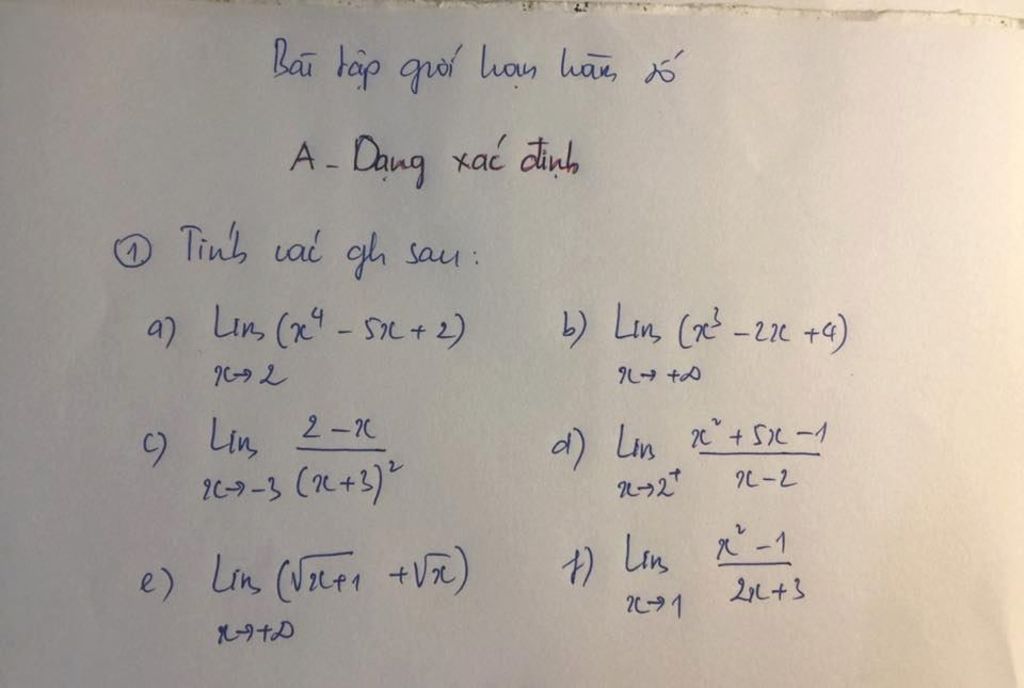 Bài tập giới hạn hàm số
A - Dạng xác định
① Tính các gh sau:
a) Lim (x⁴ - 5x + 2) b) Lim (x³ - 2x + 4)
x→2 x→+∞
c) Lim 2 - x / (x+3)² d) Lim x² + 5x - 1 / x - 2
x→-3 x→2⁺
e) Lim (√x+1 + √x) f) Lim x² - 1 / 2x + 3
x→+∞ x→1